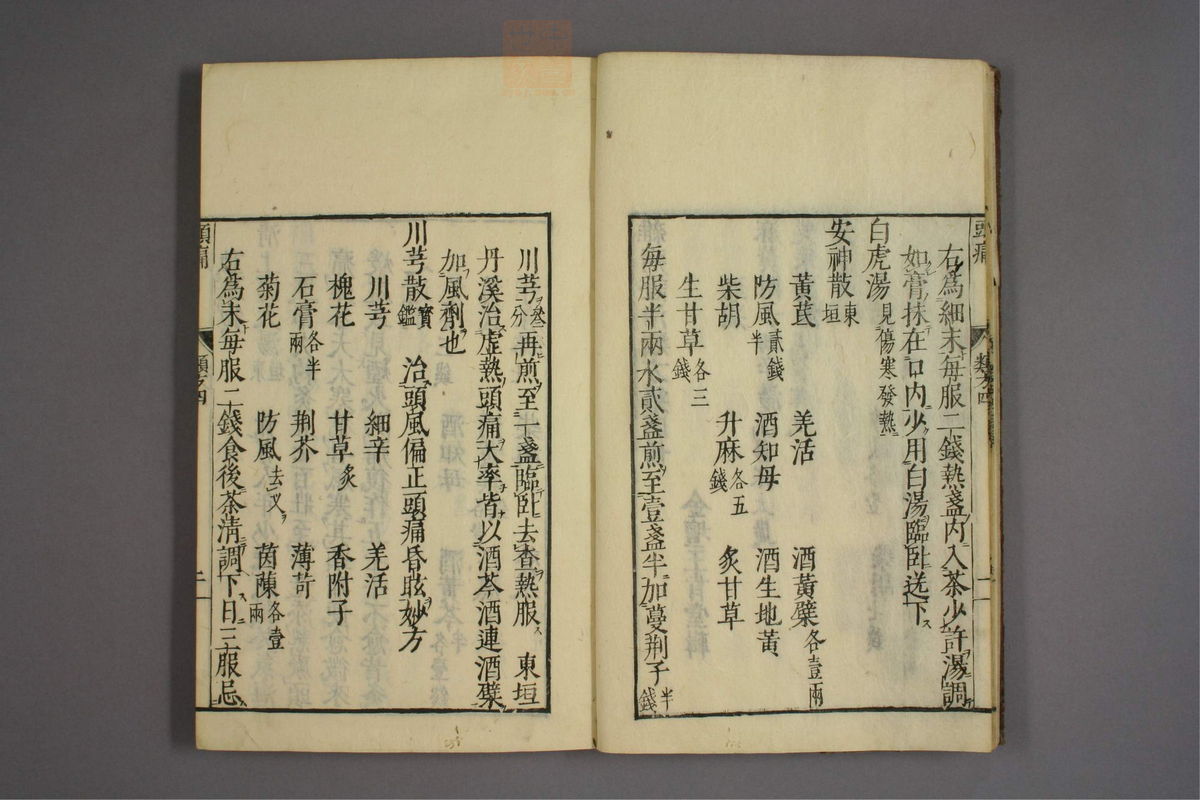 頭痛
類方四
二
右為細末每服二錢熱盞内入茶少許湯調
如膏抹在口内少用白湯臨卧送下
白虎湯 見傷寒發熱
安神散 東垣
黃茋 羌活 酒黃檗 各壹兩
防風 貳錢半 酒知母 酒生地黃
柴胡 升麻 各五錢 炙甘草
生甘草 各三錢
每服半兩水貳盞煎至壹盞半加蔓荆子 半錢
川芎 叁分 再煎至一盞臨卧去查熱服 東垣
丹溪治虚熱頭痛大率皆以酒芩酒連酒檗
加風劑也
川芎散 寳鑑 治頭風偏正頭痛昏眩妙方
川芎 細辛 羌活
槐花 甘草 炙 香附子
石膏 各半兩 荆芥 薄苛
菊花 防風 去叉 茵蔯 各壹兩
右為末每服二錢食後茶淸調下日三服忌
頭痛
類方四
二